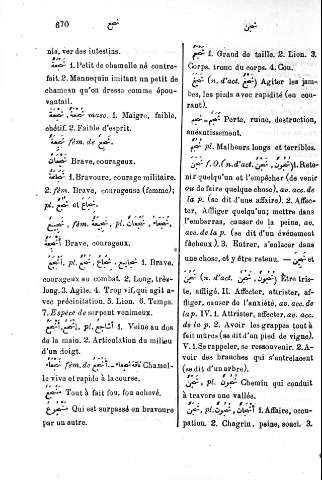 670
شجع
شجن
nia, ver des intestins.
1. Petit de chamelle né contre-
fait. 2. Mannequin imitant un petit de
chameau qu'on dresse comme épou-
vantail.
masc. 1. Maigre, faible,
chétif. 2. Faible d'esprit.
fém. de
Brave, courageux.
1. Bravoure, courage militaire.
2. fém. Brave, courageuse (femme);
pl.
pl.
Brave, courageux.
pl. 1. Brave,
courageux au combat. 2. Long, très-
long. 3. Agile. 4. Trop vif, qui agit a-
vec précipitation. 5. Lion. 6. Temps.
7. Espèce de serpent venimeux.
pl. 1. Veine au dos
de la main. 2. Articulation du milieu
d'un doigt.
fém. de Chamel-
le vive et rapide à la course.
Tout à fait fou, fou achevé.
Qui est surpassé en bravoure
par un autre.
1. Grand de taille. 2. Lion. 3.
Corps, tronc du corps. 4. Cou.
(n. d'act. ) Agiter les jam-
bes, les pieds avec rapidité (en cou-
rant).
Perte, ruine, destruction,
anéantissement.
pl. Malheurs longs et terribles.
شجن f. O. (n. d'act. شجن, شجون) 1. Rete-
nir quelqu'un et l'empêcher (de venir
ou de faire quelque chose), av. acc. de
la p. (se dit d'une affaire). 2. Affec-
ter, Affliger quelqu'un; mettre dans
l'embarras, causer de la peine, av.
acc. de la p. (se dit d'un événement
fâcheux). 3. Entrer, s'enlacer dans
une chose, et y être retenu. — شجن et
شجن (n. d'act. شجن, شجون) Être tris-
te, affligé. II. Affecter, attrister, af-
fliger, causer de l'anxiété, av. acc. de
la p. IV. 1. Attrister, affecter, av. acc.
de la p. 2. Avoir les grappes tout à
fait mûres (se dit d'un pied de vigne).
V. 1. Se rappeler, se ressouvenir. 2. A-
voir des branches qui s'entrelacent
(se dit d'un arbre).
شجن, pl. شجون Chemin qui conduit
à travers une vallée.
شجن, pl. شجون, أشجان 1. Affaire, occu-
pation. 2. Chagrin, peine, souci. 3.